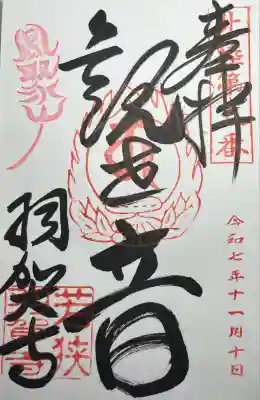 奉拝
令和七年十一月十日
観世音
鳳聚山
羽賀寺
若狭
羽賀寺